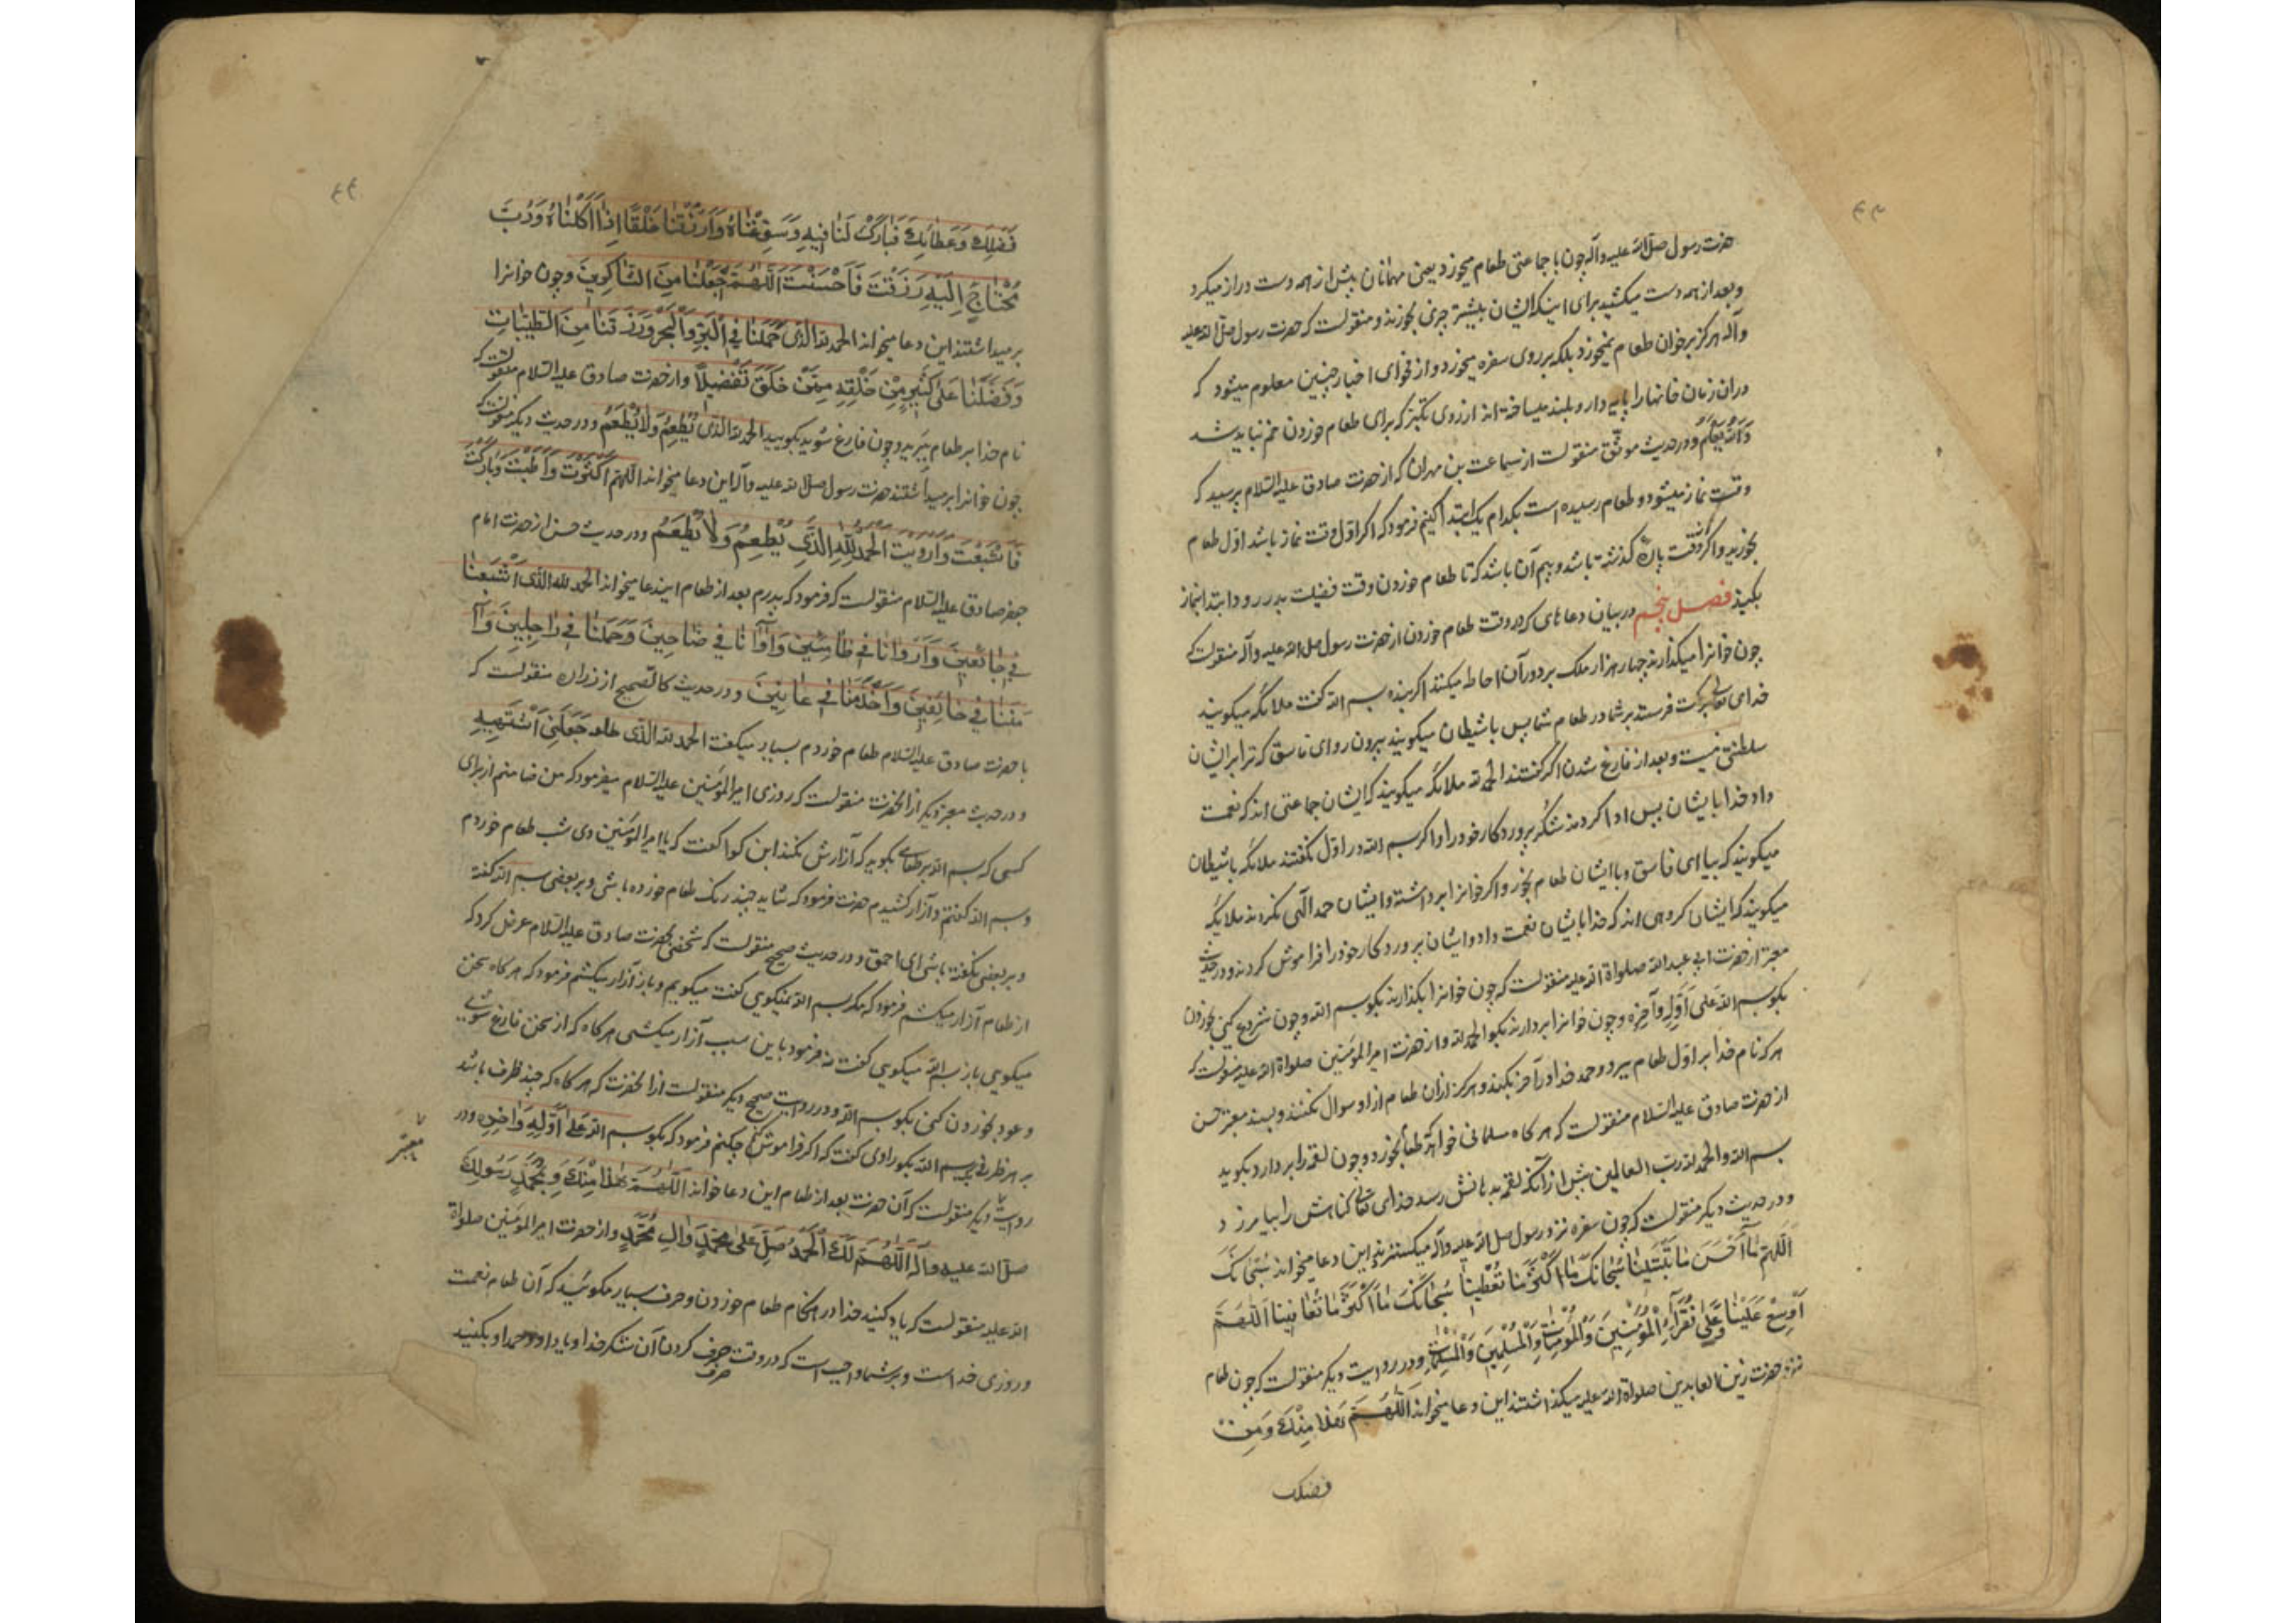 ۴۳
حضرت رسول صلی الله علیه وآله چون با جماعتی طعام میخورد یعنی مهمانان پیش از همه دست دراز میکرد
وبعد از همه دست میکشید برای اینکه ایشان بیشتر چیزی بخورند ومنقولست که حضرت رسول صلی الله علیه
وآله هرگز بر خوان طعام نمیخورد بلکه بر روی سفره میخورد واز فحوای اخبار چنین معلوم میشود که
دران زمان خانها را پایه دار وبلند میساخته اند از روی تکبر که برای طعام خوردن خم نباید شد
والله یعلم ودر حدیث موثق منقولست از سماعت بن مهران که از حضرت صادق علیه السلام پرسید که
وقت نماز میشود وطعام رسیده است بکدام یک ابتدا کنیم فرمود که اگر اول وقت نماز باشد اول طعام
بخورید واگر از وقت پاره گذشته باشد وبیم آن باشد که تا طعام خوردن وقت فضیلت بدر رود ابتدا بنماز
بکنید فصل پنجم در بیان دعاهای که در وقت طعام خوردن از حضرت رسول صلی الله علیه وآله منقولست که
چون خوانرا میگذارند چهار هزار ملک بر دور آن احاطه میکنند اگر بنده بسم الله گفت ملائکه میگویند
خدای تعالی برکت فرستد بر شما در طعام شما پس با شیطان میگویند بیرون رو ای فاسق که ترا بر ایشان
سلطنتی نیست وبعد از فارغ شدن اگر گفتند الحمد لله ملائکه میگویند که ایشان جماعتی اند که نعمت
داد خدا بایشان پس ادا کردند شکر پروردکار خود را واگر بسم الله در اول نگفتند ملائکه با شیطان
میگویند که بیا ای فاسق وبا ایشان طعام بخور واگر خوانرا برداشتند وایشان حمد الهی نکردند ملائکه
میگویند که ایشان گروهی اند که خدا بایشان نعمت داد وایشان پروردکار خود را فراموش کردند ودر حدیث
معتبر از حضرت ابی عبد الله صلواة الله علیه منقولست که چون خوانرا بگذارند بگو بسم الله وچون شروع کنی بخوردن
بگو بسم الله علی اوله وآخره وچون خوانرا بردارند بگو الحمد لله واز حضرت امیر المؤمنین صلواة الله علیه منقولست که
هر که نام خدا بر اول طعام ببرد وحمد خدا در آخر بکند هرگز از ان طعام از او سوال نکنند وبسند معتبر حسن
از حضرت صادق علیه السلام منقولست که هر گاه مسلمانی خواهد که طعام بخورد وچون لقمه را بردارد بگوید
بسم الله والحمد لله رب العالمین پیش از آنکه لقمه بدهانش رسد خدای تعالی گناهش را بیامرزد
ودر حدیث دیگر منقولست که چون سفره نزد رسول صلی الله علیه وآله میگستردند این دعا میخواند سُبْحانَکَ
اَللّهُمَّ ما اَحْسَنَ ما تَبْتَلینا سُبْحانَکَ ما اَکْثَرَ ما تُعْطینا سُبْحانَکَ ما اَکْثَرَ ما تُعافینا اَللّهُمَّ
اَوْسِعْ عَلَیْنا وَعَلی فُقَراءِ الْمُؤْمِنینَ وَالْمُؤْمِناتِ وَالْمُسْلِمینَ وَالْمُسْلِماتِ ودر روایت دیگر منقولست که چون طعام
نزد حضرت زین العابدین صلواة الله علیه میگذاشتند این دعا میخواند اَللّهُمَّ هذا مِنْکَ وَمِنْ
فضلک
۴۴
فَضْلِکَ وَعَطائِکَ فَبارِکْ لَنا فیهِ وَسَوِّغْناهُ وَارْزُقْنا خَلَفًا اِذا اَکَلْناهُ وَرُبَّ
مُحْتاجٍ اِلَیْهِ رَزَقْتَ فَاَحْسَنْتَ اَللّهُمَّ اجْعَلْنا مِنَ الشّاکِرینَ وچون خوانرا
برمیداشتند این دعا میخواند الحمد لله الَّذی حَمَلَنا فِی الْبَرِّ وَالْبَحْرِ وَرَزَقَنا مِنَ الطَّیِّباتِ
وَفَضَّلَنا عَلی کَثیرٍ مِنْ خَلْقِهِ مِمَّنْ خَلَقَ تَفْضیلاً واز حضرت صادق علیه السلام منقولست که
نام خدا بر طعام ببرید وچون فارغ شوید بگویید الحمد لله الَّذی یُطْعِمُ وَلا یُطْعَمُ ودر حدیث دیگر منقولست که
چون خوانرا برمیداشتند حضرت رسول صلی الله علیه وآله این دعا میخواند اَللّهُمَّ اَکْثَرْتَ وَاَطَبْتَ وَبارَکْتَ
فَاَشْبَعْتَ وَاَرْوَیْتَ اَلْحَمْدُ لِلّهِ الَّذی یُطْعِمُ وَلا یُطْعَمُ ودر حدیث حسن از حضرت امام
جعفر صادق علیه السلام منقولست که فرمود که پدرم بعد از طعام این دعا میخواند الحمد لله الَّذی اَشْبَعَنا
فی جائِعینَ وَاَرْوانا فی ظامِئینَ وَآوانا فی ضاحینَ وَحَمَلَنا فی راجِلینَ وَآ
مَنَنا فی خائِفینَ وَاَخْدَمَنا فی عانینَ ودر حدیث کالصحیح از زراره منقولست که
با حضرت صادق علیه السلام طعام خوردم بسیار میگفت الحمد لله الَّذی جَعَلَنی اَشْتَهیهِ
ودر حدیث معتبر دیگر از انحضرت منقولست که روزی امیر المؤمنین علیه السلام میفرمود که من ضامنم از برای
کسی که بسم الله بر طعامی بگوید که آزارش نکند ابن کوا گفت که یا امیر المؤمنین دی شب طعام خوردم
وبسم الله گفتم وآزار کشیدم حضرت فرمود که شاید چند رنگ طعام خورده باشی وبر بعضی بسم الله گفته
وبر بعضی نگفته باشی ای احمق ودر حدیث صحیح منقولست که شخصی بحضرت صادق علیه السلام عرض کرد که
از طعام آزار میکشم فرمود که مگر بسم الله نمیگویی گفت میگویم وباز آزار میکشم فرمود که هر گاه سخن
میگویی باز بسم الله میگویی گفت نه فرمود باین سبب آزار میکشی هر گاه که از سخن فارغ شوی
وعود بخوردن کنی بگو بسم الله ودر روایت صحیح دیگر منقولست از انحضرت که هر گاه که چند ظرف باشد
بر هر ظرفی بسم الله بگو راوی گفت که اگر فراموش کنم چکنم فرمود که بگو بسم الله عَلی اَوَّلِهِ وَآخِرِهِ ودر
روایت دیگر منقولست که آن حضرت بعد از طعام این دعا خواند اَللّهُمَّ هذا مِنْکَ وَبِمُحَمَّدٍ رَسُولِکَ
معتبر
صلی الله علیه وآله اَللّهُمَّ لَکَ الْحَمْدُ صَلِّ عَلی مُحَمَّدٍ وَآلِ مُحَمَّدٍ واز حضرت امیر المؤمنین صلواة
الله علیه منقولست که یاد کنید خدا در هنگام طعام خوردن وحرف بسیار مگوئید که آن طعام نعمت
وروزی خداست وبر شما واجب است که در وقت صرف کردن آن شکر خدا ویاد او وحمد او بکنید
صرف